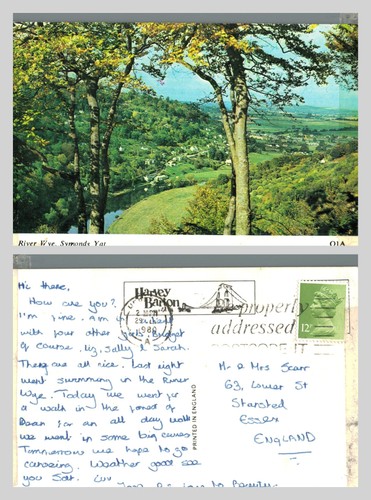 River Wye, Symonds Yat
O1A
Hi there,
How are you?
I'm fine. Am in a tent
with four other girls Bridget
of course, Liz, Sally & Sarah.
There all nice. Last night
went swimming in the River
Wye. Today we went for
a walk in the forest of
Dean for an all day walk
we went in some big caves
Timmorrow we hope to go
canoeing. Weather good see
you Sat. Luv
Harvey
Barton
1986
A
properly
addressed
POSTCODE IT
12
PRINTED IN ENGLAND
Mr & Mrs Scarr
63, Lower St
Stansted
Essex
ENGLAND